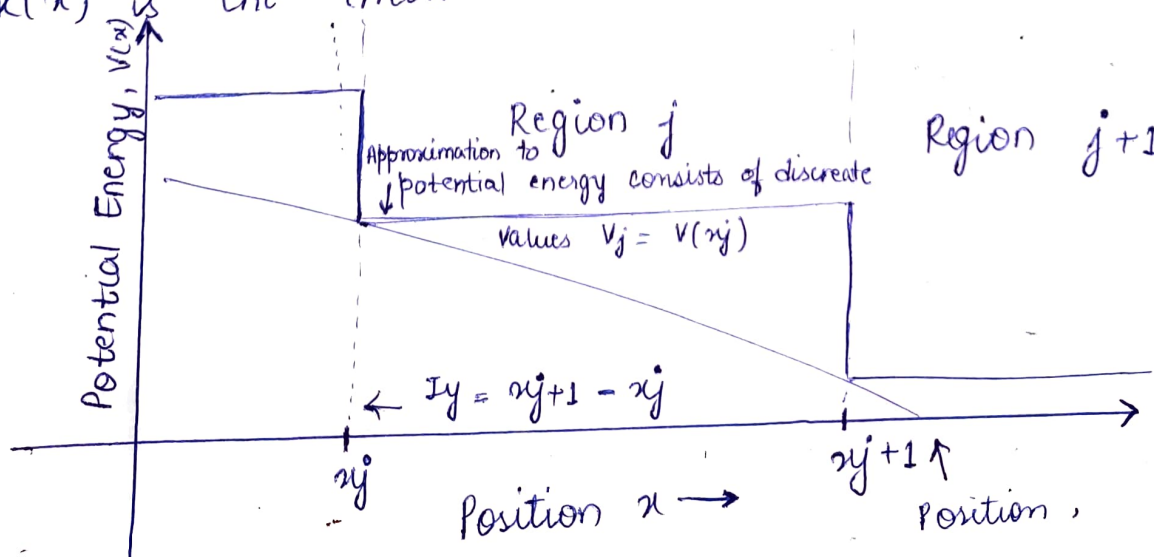 Potential Energy, V(x)
Region j
Region j+1
Approximation to
potential energy consists of discreate
values Vj = V(xj)
← Iy = xj+1 - xj
xj
xj+1 ↑
Position x →
Position,